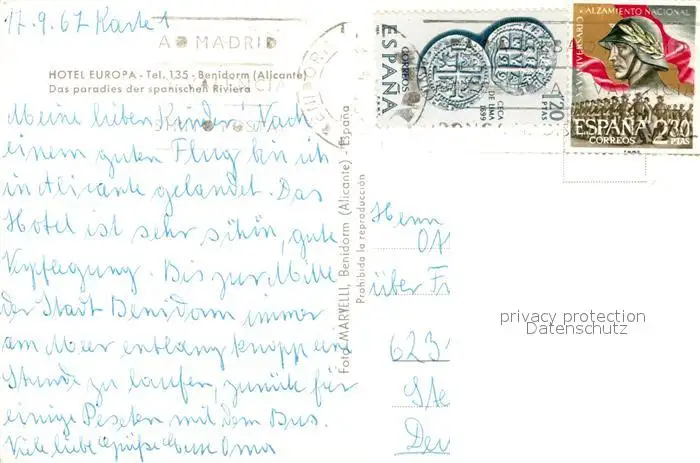 17.9.67 Karte 1
A MADRID
HOTEL EUROPA - Tel. 135 - Benidorm (Alicante)
Das paradies der spanischen Riviera
Meine lieben Kinder. Nach
einem guten Flug bin ich
in Alicante gelandet. Das
Hotel ist sehr schön, gute
Verpflegung. Bis zur Mitte
der Stadt Benidorm immer
am Meer entlang knapp eine
Stunde zu laufen, zurück für
einige Peseten mit dem Bus.
Viele liebe Grüße Eure Oma
Foto MARVELLI, Benidorm (Alicante) - España
Prohibida la reproducción
ESPAÑA
CORREOS
CECA DE LIMA 1699
1'20 PTAS
ANIVERSARIO ALZAMIENTO NACIONAL
ESPAÑA 2'30
CORREOS PTAS
Herrn
über Fr
623
Ste
privacy protection
Datenschutz